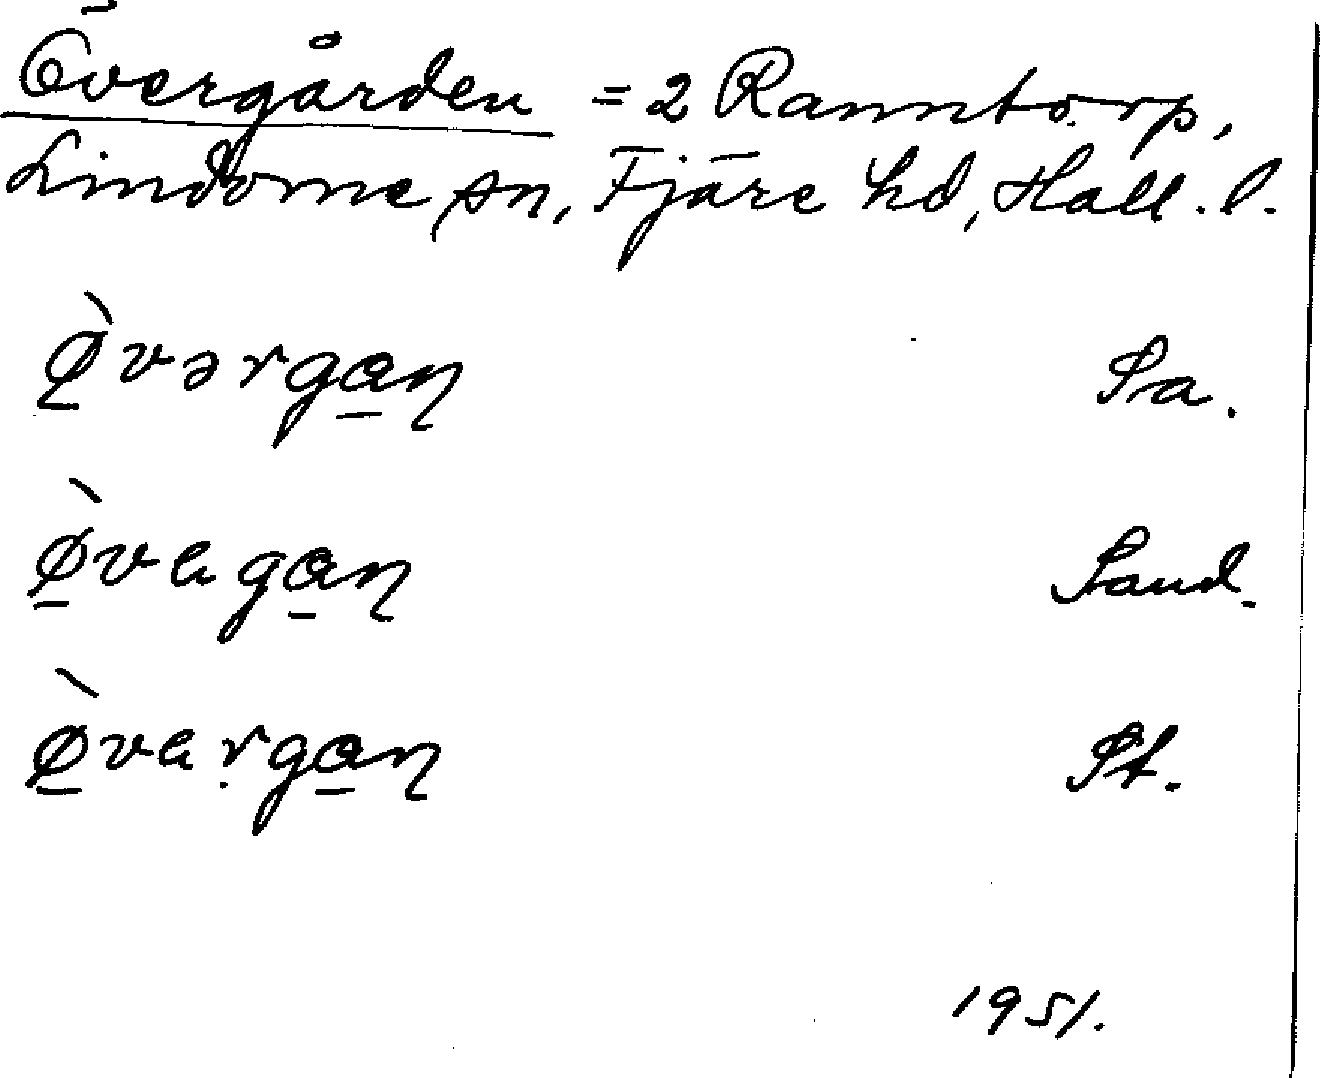 Övergården = 2 Ranntorp,
Lindome sn, Fjäre hd, Hall. l.
ø̠̀vərga̠ɳ Sa.
ø̠̀vaga̠ɳ Sand.
ø̠̀vaṛga̠ɳ St.
1951.